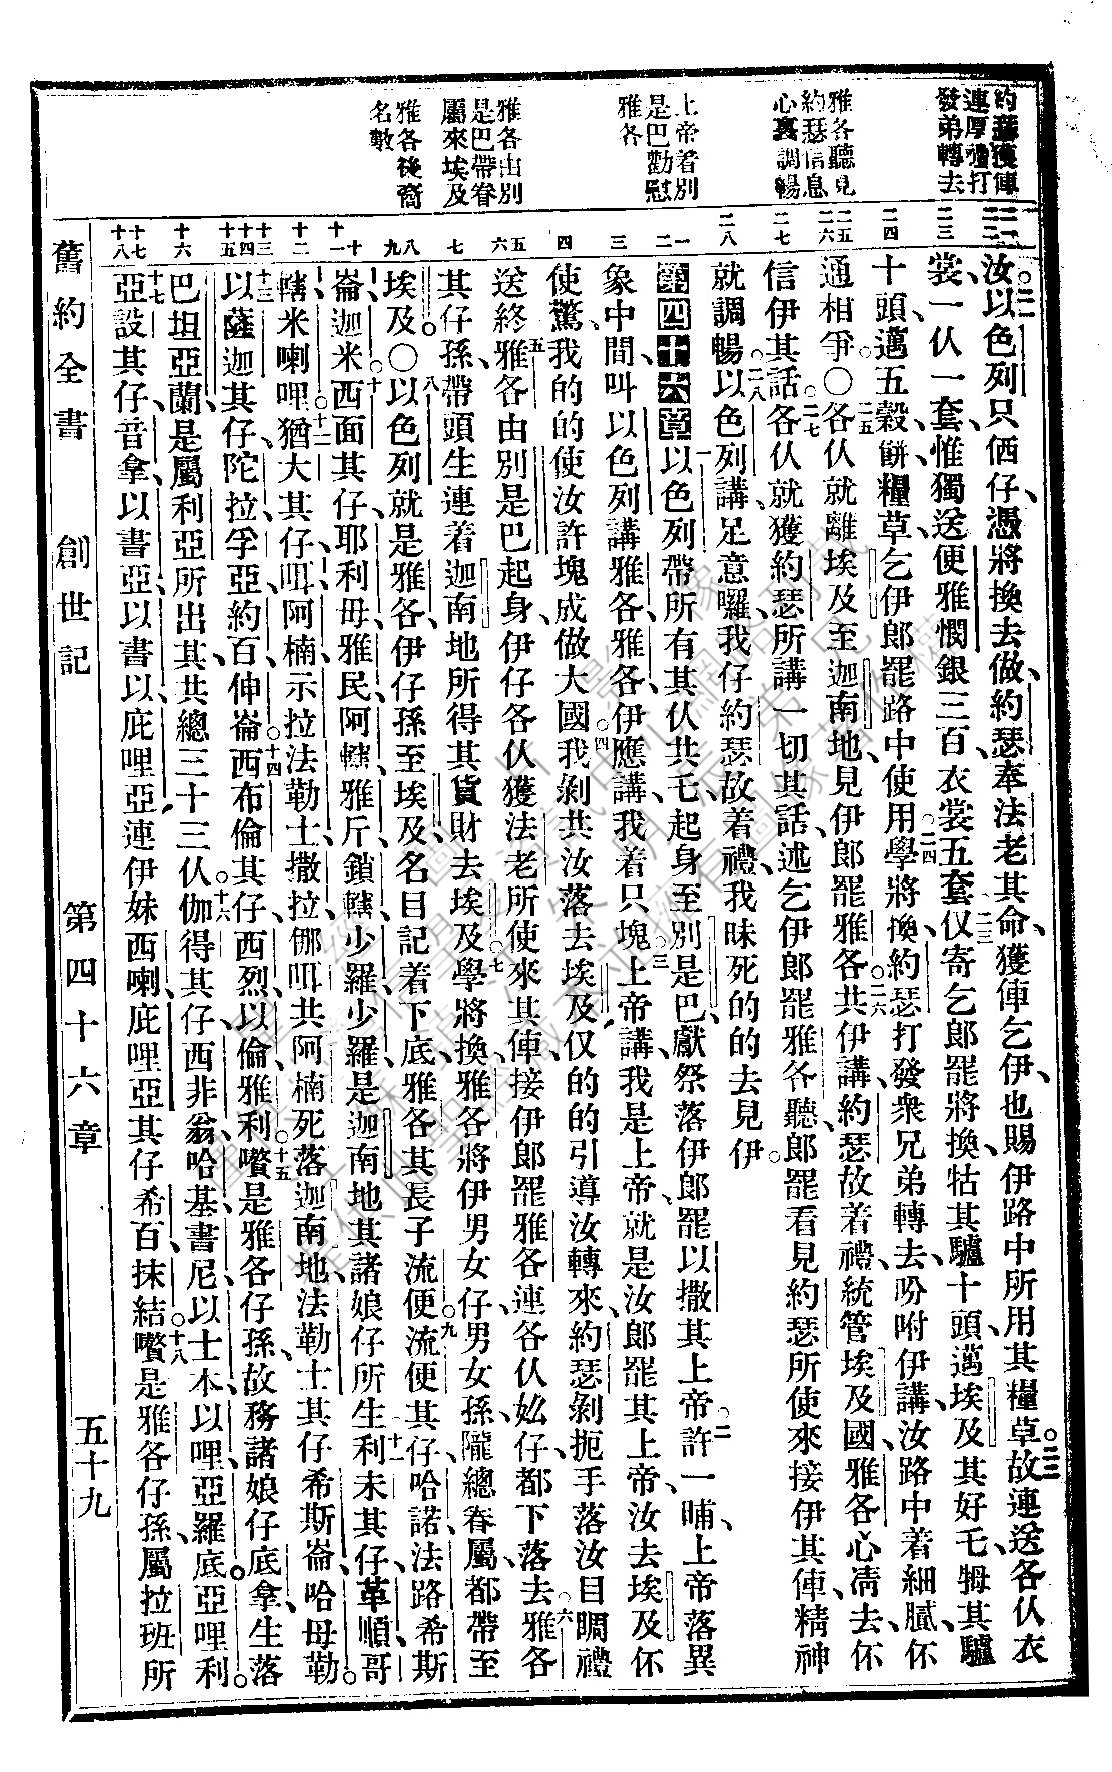 約瑟獲俥
連厚禮打
發弟轉去
雅各聽見
約瑟信息
心裏調暢
上帝着別
是巴勸慰
雅各
雅各出別
是巴帶眷
屬來埃及
雅各後裔
名數
汝以色列只俖仔憑將換去做約瑟奉法老其命獲俥乞伊也賜伊路中所用其糧草故連送各仈衣
裳一仈一套惟獨送便雅憫銀三百衣裳五套仅寄乞郎罷將換牯其驢十頭邁埃及其好毛牳其驢
十頭邁五穀餅糧草乞伊郎罷路中使用學將換約瑟打發衆兄弟轉去吩咐伊講汝路中着細膩伓
通相爭○各仈就離埃及至迦南地見伊郎罷雅各共伊講約瑟故着禮統管埃及國雅各心凊去伓
信伊其話各仈就獲約瑟所講一切其話述乞伊郎罷雅各聽郎罷看見約瑟所使來接伊其俥精神
就調暢以色列講足意囉我仔約瑟故着禮我昧死的的去見伊
第四十六章以色列帶所有其仈共毛起身至別是巴獻祭落伊郎罷以撒其上帝許一晡上帝落異
象中間叫以色列講雅各雅各伊應講我着只塊上帝講我是上帝就是汝郎罷其上帝汝去埃及伓
使驚我的的使汝許塊成做大國我剝共汝落去埃及仅的的引導汝轉來約瑟剝扼手落汝目睭禮
送終雅各由別是巴起身伊仔各仈獲法老所使來其俥接伊郎罷雅各連各仈妐仔都下落去雅各
其仔孫帶頭生連着迦南地所得其貨財去埃及學將換雅各將伊男女仔男女孫隴總眷屬都帶至
埃及○以色列就是雅各伊仔孫至埃及名目記着下底雅各其長子流便流便其仔哈諾法路希斯
崙迦米西面其仔耶利毋雅民阿轄雅斤鎖轄少羅少羅是迦南地其諸娘仔所生利未其仔革順哥
轄米喇哩猶大其仔咡阿楠示拉法勒士撒拉㑚咡共阿楠死落迦南地法勒士其仔希斯崙哈母勒
以薩迦其仔陀拉孚亞約百伸崙西布倫其仔西烈以倫雅利嚽是雅各仔孫故務諸娘仔底拿生落
巴坦亞蘭是屬利亞所出其共總三十三仈伽得其仔西非翁哈基書尼以士本以哩亞羅底亞哩利
亞設其仔音拿以書亞以書以庇哩亞連伊妹西喇庇哩亞其仔希百抹結嚽是雅各仔孫屬拉班所
舊約全書 創世記 第四十六章 五十九